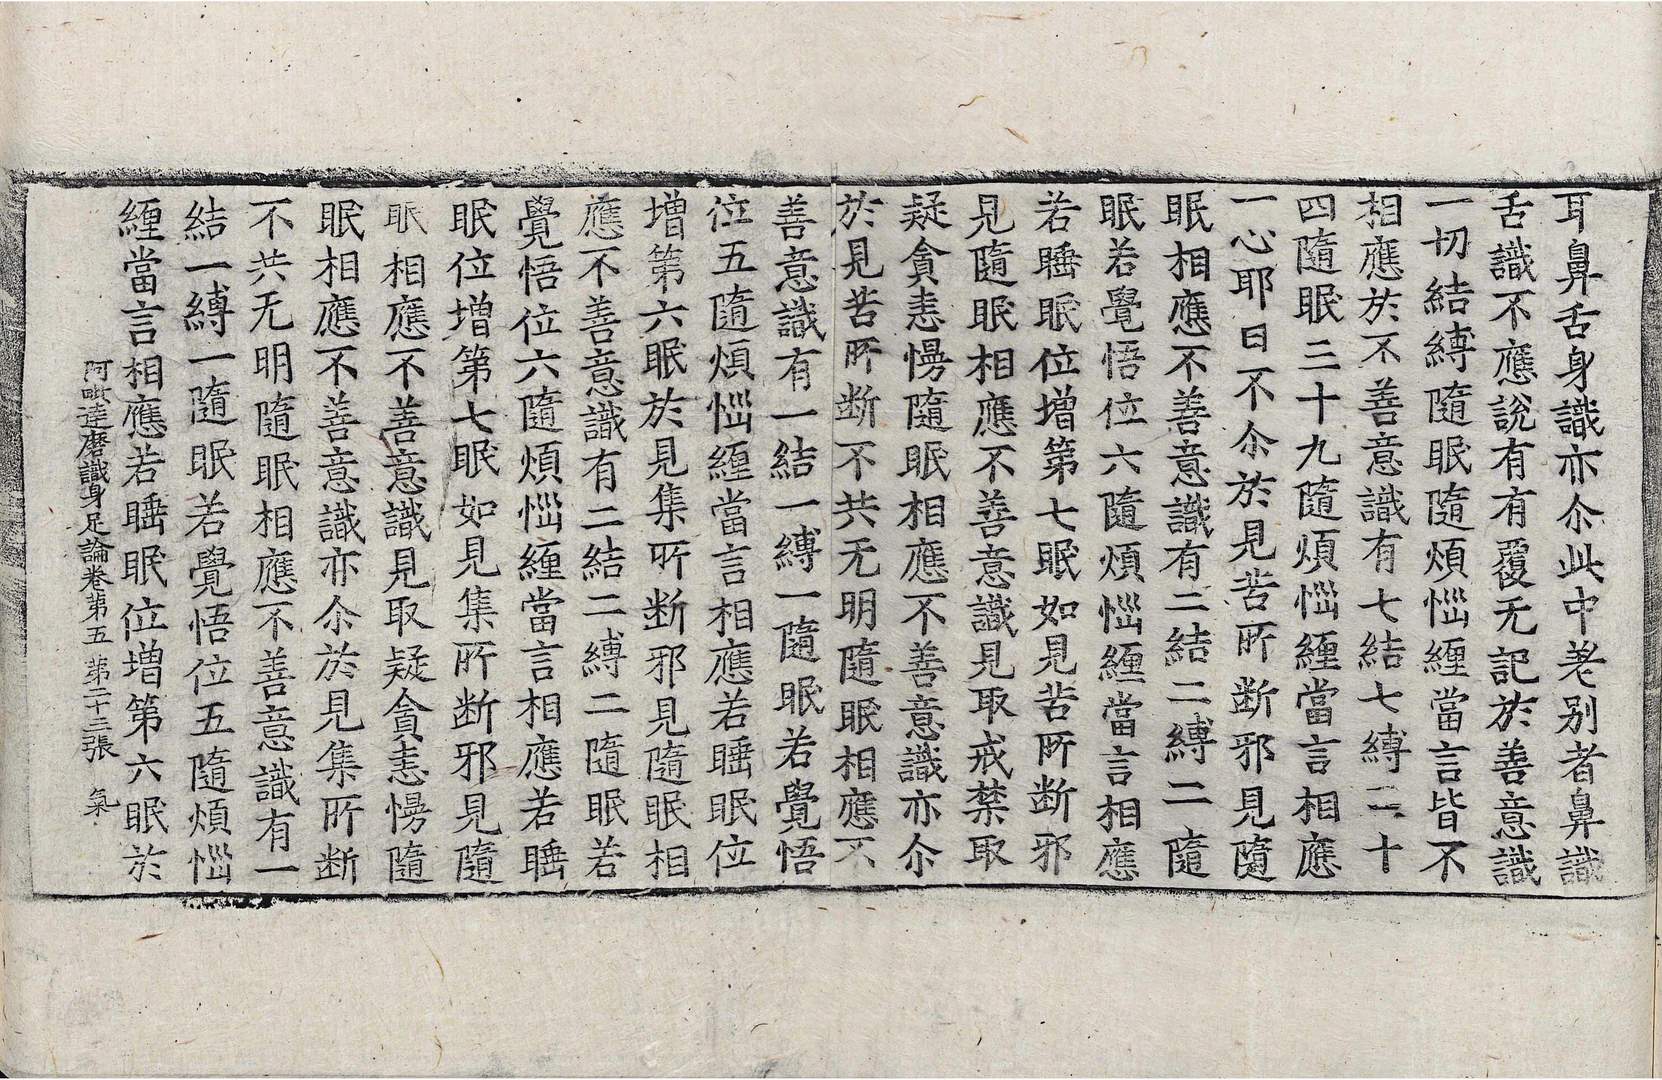 耳鼻舌身識亦尒此中差別者鼻識
舌識不應說有有覆无記於善意識
一切結縛隨眠隨煩惱纏當言皆不
相應於不善意識有七結七縛二十
四隨眠三十九隨煩惱纏當言相應
一心耶曰不尒於見苦所斷邪見隨
眠相應不善意識有二結二縛二隨
眠若覺悟位六隨煩惱纏當言相應
若睡眠位增第七眠如見苦所斷邪
見隨眠相應不善意識見取戒禁取
疑貪恚慢隨眠相應不善意識亦尒
於見苦所斷不共无明隨眠相應不
善意識有一結一縛一隨眠若覺悟
位五隨煩惱纏當言相應若睡眠位
增第六眠於見集所斷邪見隨眠相
應不善意識有二結二縛二隨眠若
覺悟位六隨煩惱纏當言相應若睡
眠位增第七眠如見集所斷邪見隨
眠相應不善意識見取疑貪恚慢隨
眠相應不善意識亦尒於見集所斷
不共无明隨眠相應不善意識有一
結一縛一隨眠若覺悟位五隨煩惱
纏當言相應若睡眠位增第六眠於
阿毗達磨識身足論卷第五 第二十三張 氣